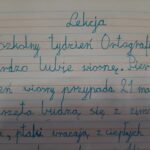 Lekcja
szkolny tydzień Ortograf
bardzo lubię wiosnę. Pier
eń wiosny przypada 21 mar
rzęta budzą się z zim
, ptaki wracają z ciepłych